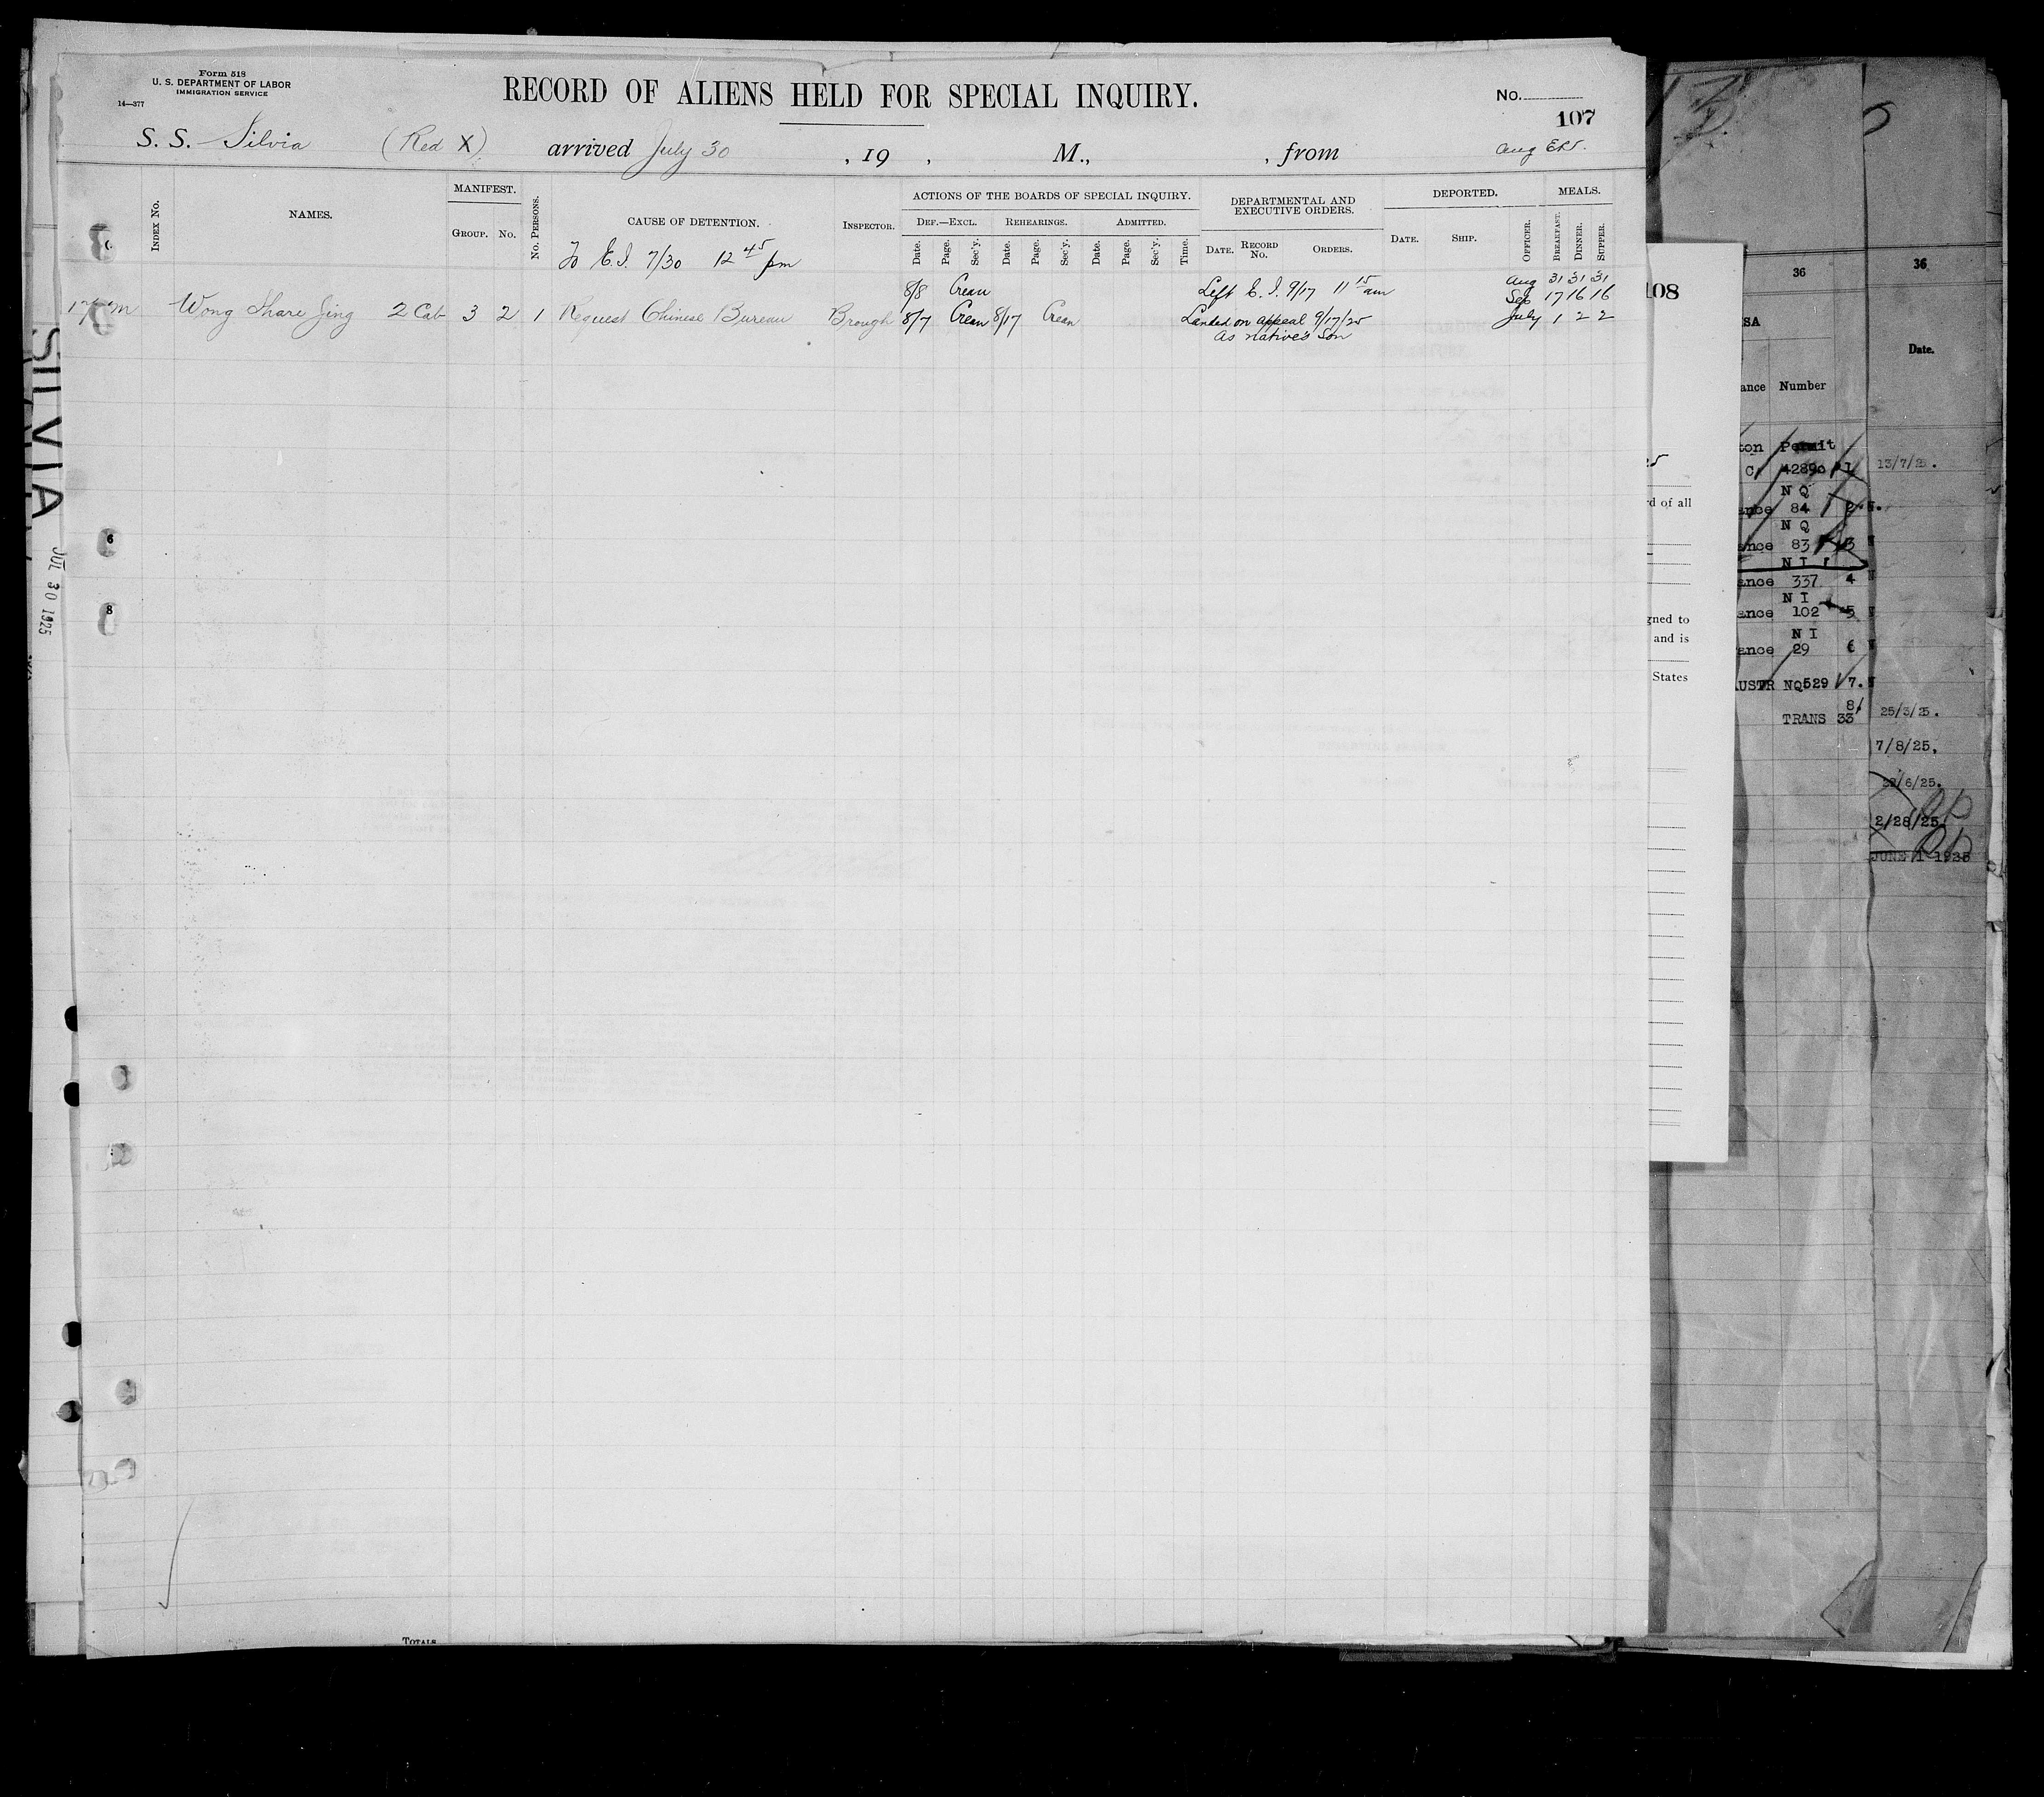 Form 518
U. S. DEPARTMENT OF LABOR
IMMIGRATION SERVICE
14—377
RECORD OF ALIENS HELD FOR SPECIAL INQUIRY.
No.
107
S. S. Silvia (Red X) arrived July 30, 19 , M., , from
Aug
INDEX NO.
NAMES.
MANIFEST.
GROUP. No.
No. PERSONS.
CAUSE OF DETENTION.
INSPECTOR.
ACTIONS OF THE BOARDS OF SPECIAL INQUIRY.
DEF.—EXCL. REHEARINGS. ADMITTED.
Date. Page. Sec'y. Date. Page. Sec'y. Date. Page. Sec'y. Time.
DEPARTMENTAL AND
EXECUTIVE ORDERS.
DATE. RECORD No. ORDERS.
DEPORTED.
DATE. SHIP. OFFICER.
MEALS.
BREAKFAST. DINNER. SUPPER.
To E.I. 7/30 12 45 pm
Aug 31 31 31
8/8 Crean Left E. I. 9/17 11 15 am Sep 17 16 16
17 m Wong Share Jing 2 Cab 3 2 1 Request Chinese Bureau Brough 8/7 Crean 8/17 Crean Landed on appeal 9/17/25 July 1 2 2
As native's Son
SILVIA
JUL 30 1925
6
8
TOTALS
108
SA
ance Number
36
36
Date.
ton Permit
C 42890 1 13/7/25.
N Q
ance 84 2.
N Q
ance 83 3
N I
ance 337 4
N I
ance 102 5
N I
ance 29 6
USTR NQ529 7.
8
TRANS 33 25/3/25.
7/8/25.
/6/25.
2/28/25.
JUNE 1 1925
d of all
gned to
and is
States